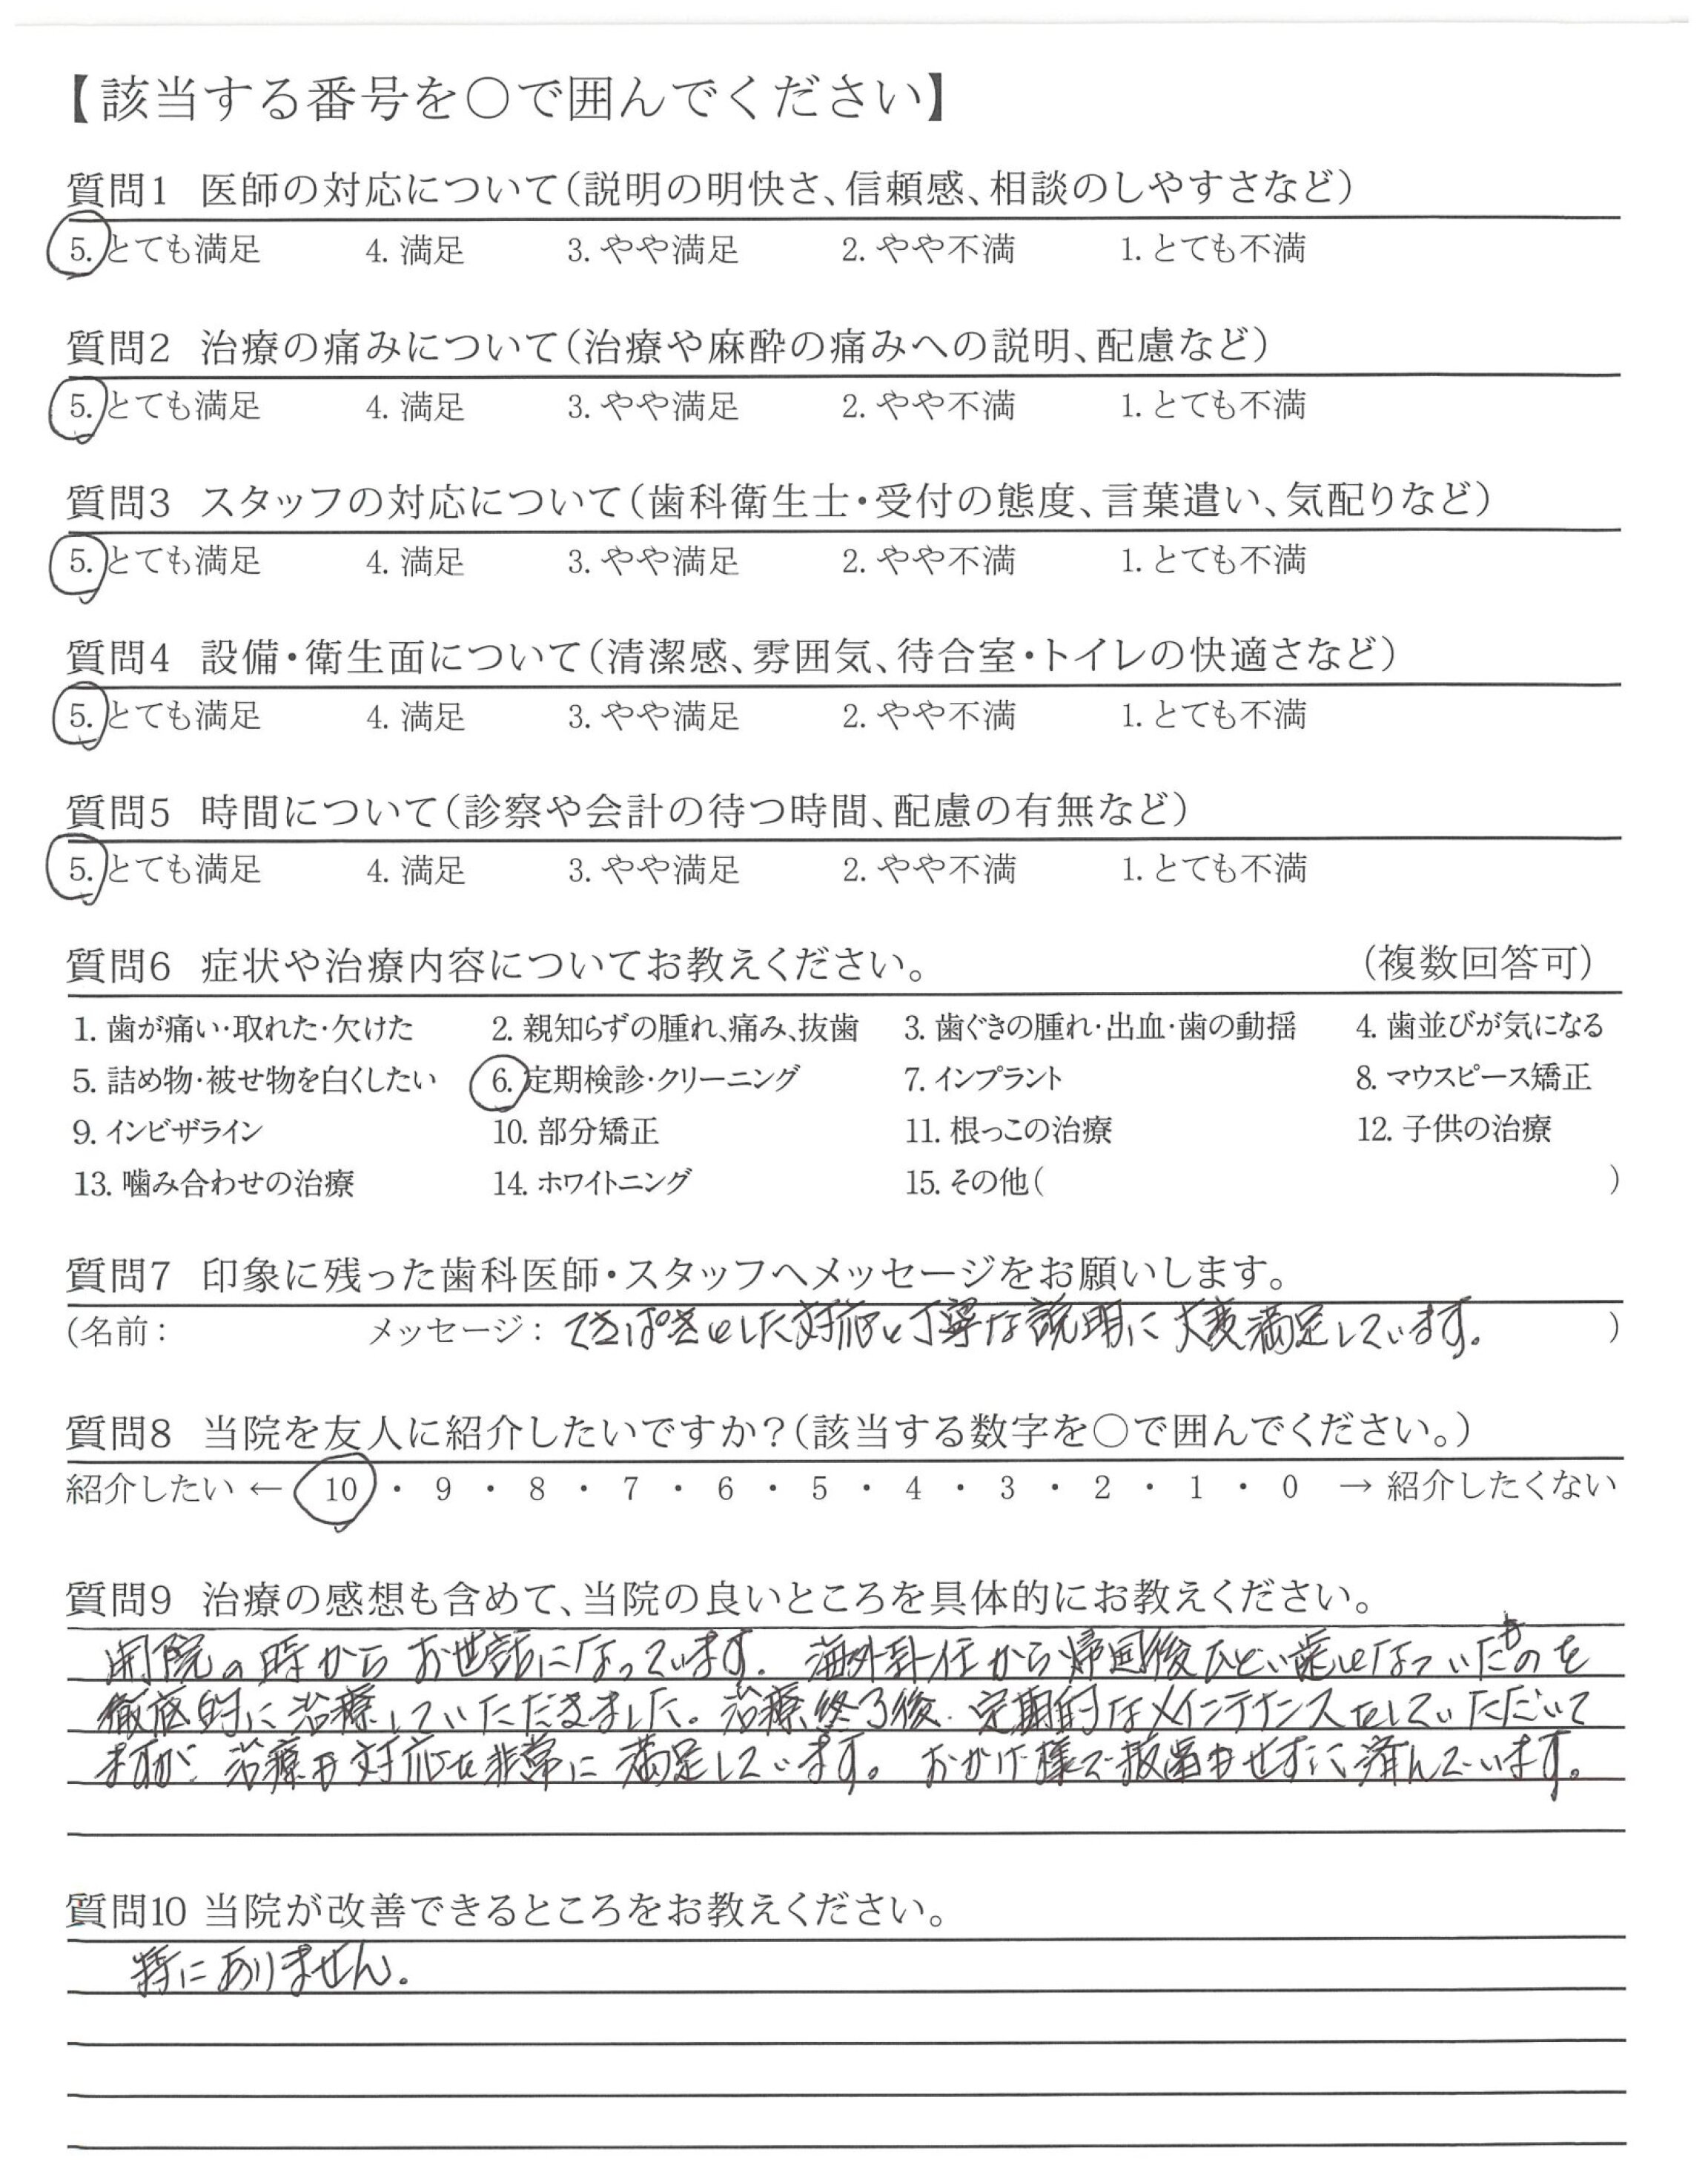 【該当する番号を〇で囲んでください】
質問1 医師の対応について（説明の明快さ、信頼感、相談のしやすさなど）
5. とても満足 4. 満足 3. やや満足 2. やや不満 1. とても不満
質問2 治療の痛みについて（治療や麻酔の痛みへの説明、配慮など）
5. とても満足 4. 満足 3. やや満足 2. やや不満 1. とても不満
質問3 スタッフの対応について（歯科衛生士・受付の態度、言葉遣い、気配りなど）
5. とても満足 4. 満足 3. やや満足 2. やや不満 1. とても不満
質問4 設備・衛生面について（清潔感、雰囲気、待合室・トイレの快適さなど）
5. とても満足 4. 満足 3. やや満足 2. やや不満 1. とても不満
質問5 時間について（診察や会計の待つ時間、配慮の有無など）
5. とても満足 4. 満足 3. やや満足 2. やや不満 1. とても不満
質問6 症状や治療内容についてお教えください。 （複数回答可）
1. 歯が痛い・取れた・欠けた 2. 親知らずの腫れ、痛み、抜歯 3. 歯ぐきの腫れ・出血・歯の動揺 4. 歯並びが気になる
5. 詰め物・被せ物を白くしたい 6. 定期検診・クリーニング 7. インプラント 8. マウスピース矯正
9. インビザライン 10. 部分矯正 11. 根っこの治療 12. 子供の治療
13. 噛み合わせの治療 14. ホワイトニング 15. その他（ ）
質問7 印象に残った歯科医師・スタッフへメッセージをお願いします。
（名前： メッセージ： てきぱきとした対応と丁寧な説明に大変満足しています。 ）
質問8 当院を友人に紹介したいですか？（該当する数字を〇で囲んでください。）
紹介したい ← 10 ・ 9 ・ 8 ・ 7 ・ 6 ・ 5 ・ 4 ・ 3 ・ 2 ・ 1 ・ 0 → 紹介したくない
質問9 治療の感想も含めて、当院の良いところを具体的にお教えください。
開院の時からお世話になっています。海外赴任から帰国後ひどい歯となっていたものを
徹底的に治療していただきました。治療終了後、定期的なメインテナンスをしていただいて
ますが、治療も対応も非常に満足しています。おかげ様で抜歯もせずに済んでいます。
質問10 当院が改善できるところをお教えください。
特にありません。